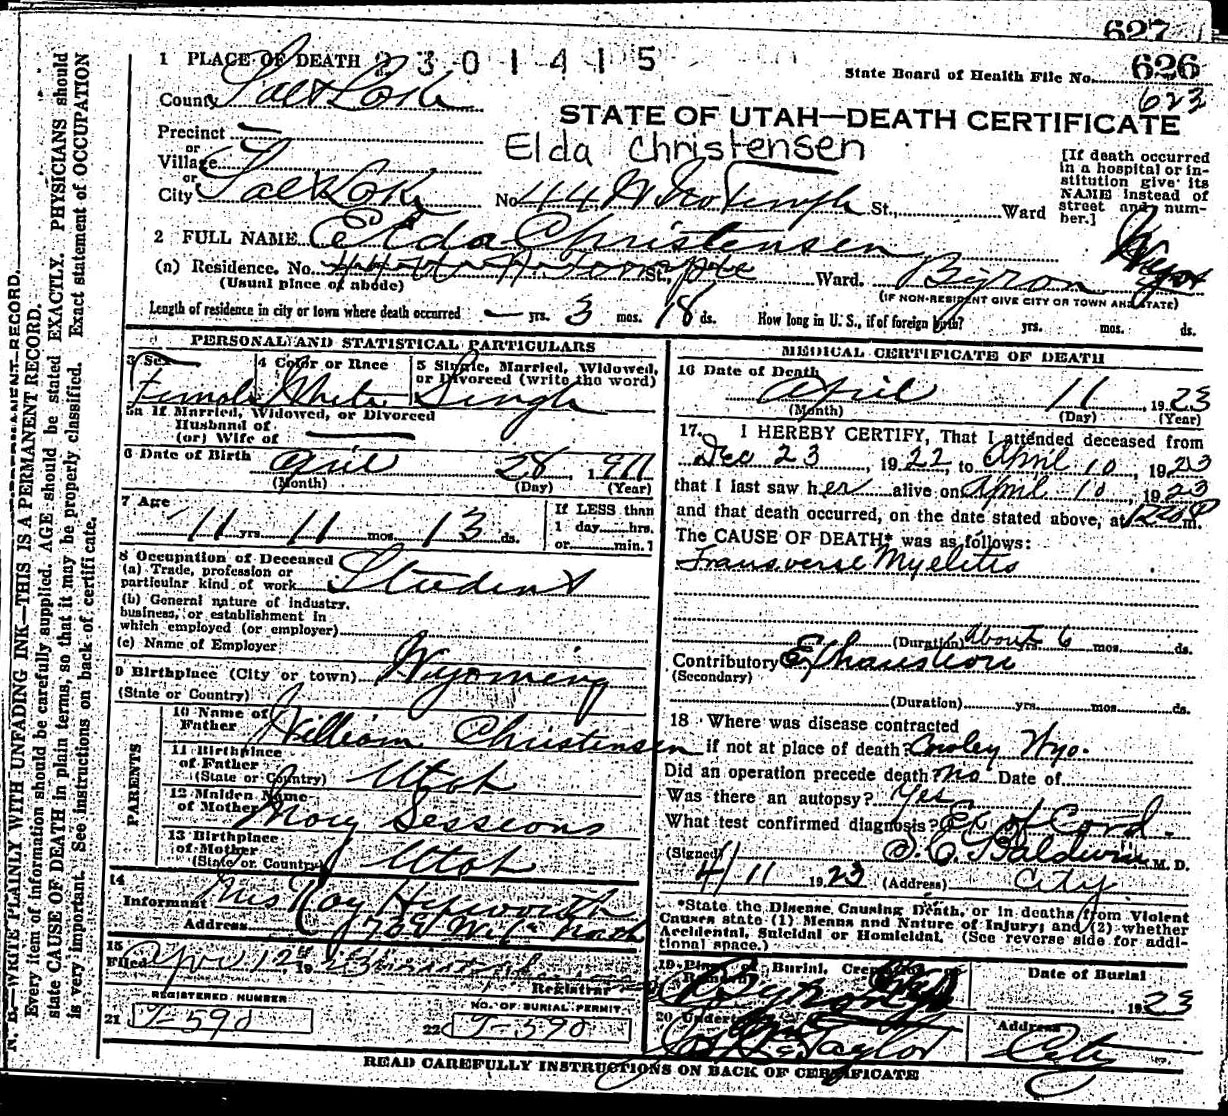 627
1 PLACE OF DEATH 2301415
State Board of Health File No. 626
623
County Salt Lake
STATE OF UTAH—DEATH CERTIFICATE
Precinct
or
Village
Elda Christensen
[If death occurred in a hospital or institution give its NAME instead of street and number.]
or
City Salt Lake No. 44 N No Temple St., Ward
2 FULL NAME Elda Christensen
(a) Residence. No. St., Ward. Byron Wyo
(Usual place of abode)
(IF NON-RESIDENT GIVE CITY OR TOWN AND STATE)
Length of residence in city or town where death occurred — yrs. 3 mos. 18 ds. How long in U. S., if of foreign birth? yrs. mos. ds.
PERSONAL AND STATISTICAL PARTICULARS
3 Sex Female
4 Color or Race White
5 Single, Married, Widowed, or Divorced (write the word) Single
5a If Married, Widowed, or Divorced
Husband of
(or) Wife of
6 Date of Birth April 28 1911
(Month) (Day) (Year)
7 Age 11 yrs. 11 mos. 13 ds.
If LESS than
1 day hrs.
or min.?
8 Occupation of Deceased
(a) Trade, profession or
particular kind of work Student
(b) General nature of industry,
business, or establishment in
which employed (or employer)
(c) Name of Employer
9 Birthplace (City or town) Wyoming
(State or Country)
PARENTS
10 Name of
Father William Christensen
11 Birthplace
of Father
(State or Country) Utah
12 Maiden Name
of Mother Mary Sessions
13 Birthplace
of Mother
(State or Country) Utah
14
Informant Mrs Ray Hepworth
Address
15
Filed Apr 12 1923
Registrar
REGISTERED NUMBER
21 T-590
NO. OF BURIAL PERMIT
22 T-590
MEDICAL CERTIFICATE OF DEATH
16 Date of Death
April 11, 1923
(Month) (Day) (Year)
17. I HEREBY CERTIFY, That I attended deceased from
Dec 23, 1922, to April 10, 1923
that I last saw her alive on April 10, 1923
and that death occurred, on the date stated above, at m.
The CAUSE OF DEATH* was as follows:
Transverse Myelitis
(Duration) About 6 mos. ds.
Contributory Exhaustion
(Secondary)
(Duration) yrs. mos. ds.
18 Where was disease contracted
if not at place of death? Cowley Wyo.
Did an operation precede death? no Date of
Was there an autopsy? Yes
What test confirmed diagnosis? Ex of Cord.
(Signed) S. C. Baldwin M. D.
4/11 1923 (Address) City
*State the Disease Causing Death, or in deaths from Violent
Causes state (1) Means and Nature of Injury; and (2) whether
Accidental, Suicidal or Homicidal. (See reverse side for addi-
tional space.)
19 Place of Burial, Byron
Date of Burial
1923
20 Undertaker Taylor
Address
City
READ CAREFULLY INSTRUCTIONS ON BACK OF CERTIFICATE
N. B.—WRITE PLAINLY WITH UNFADING INK—THIS IS A PERMANENT RECORD.
Every item of information should be carefully supplied. AGE should be stated EXACTLY. PHYSICIANS should
state CAUSE OF DEATH in plain terms, so that it may be properly classified. Exact statement of OCCUPATION
is very important. See instructions on back of certificate.